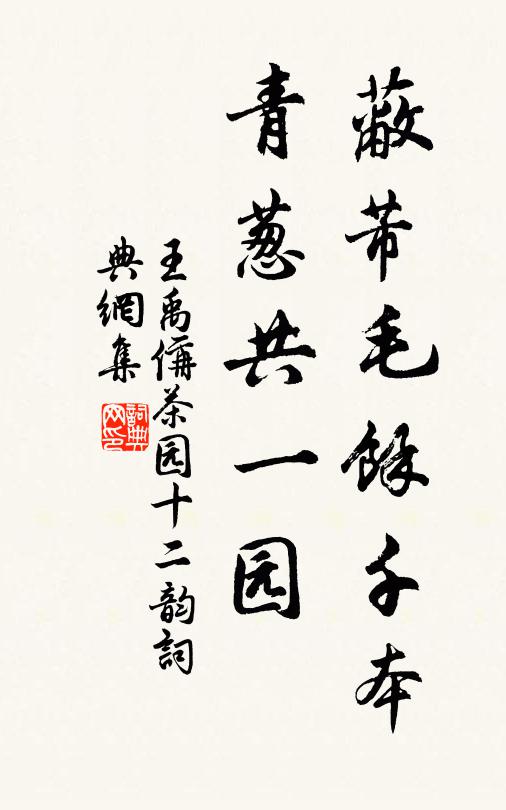 蔽芾毛餘千本
青葱共一园
王禹偁茶园十二韵詞
典網集
詞典网印